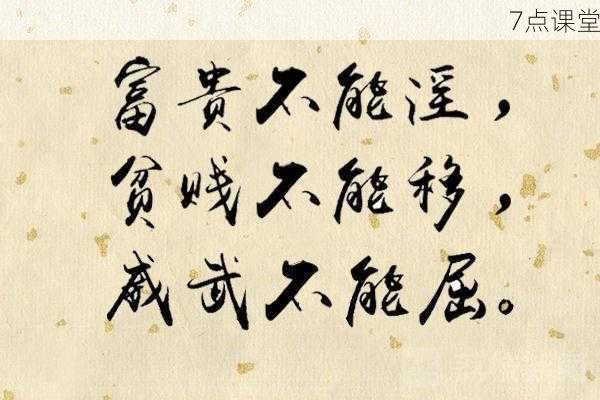 7点课堂
富貴不能淫，
贫贱不能移，
威武不能屈。